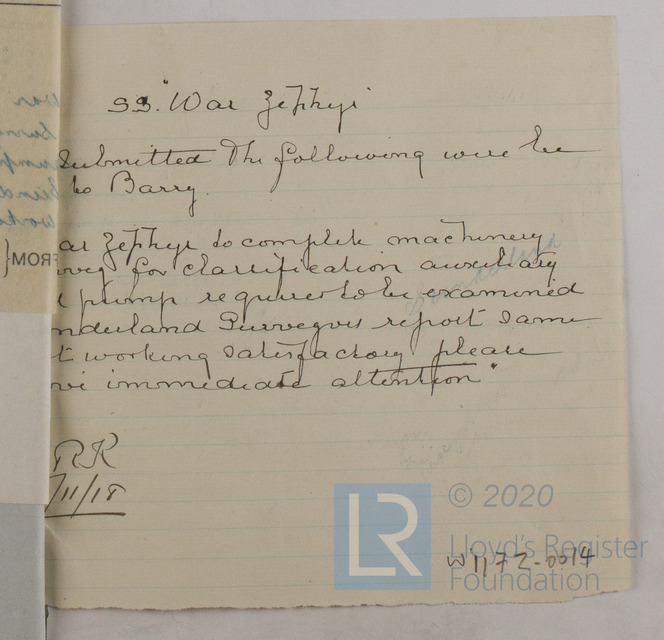 SS. "War Zephyr
Submitted The following wire be
to Barry.
ar Zephyr to complete machinery
vey for classification auxiliary
d pump requires to be examined
nderland Surveyors report same
t working satisfactory please
ve immediate attention"
RK
/11/18
FROM
© 2020
LR
Lloyd's Register
Foundation
W1172-0014